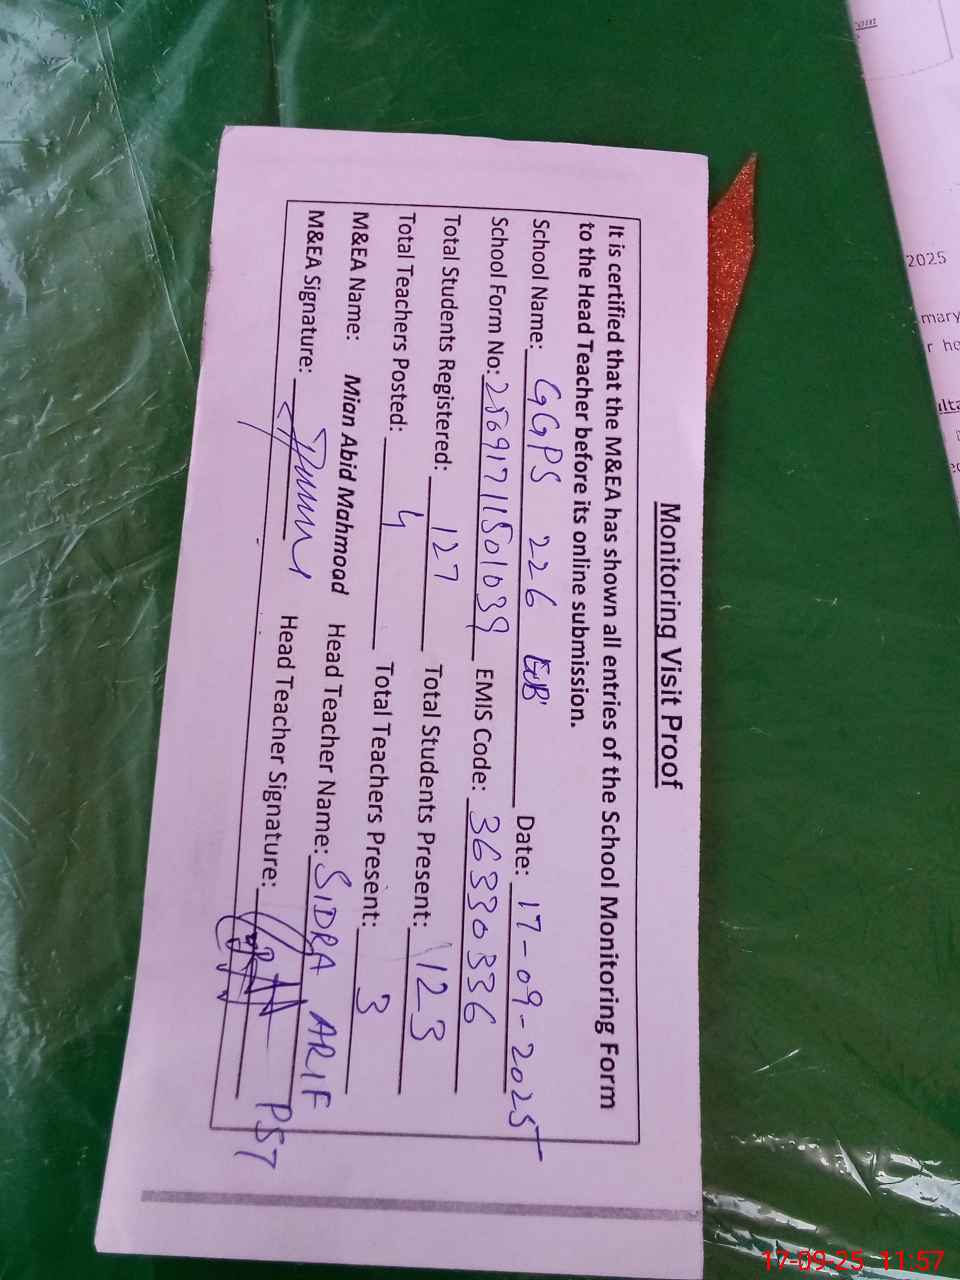 Monitoring Visit Proof
It is certified that the M&EA has shown all entries of the School Monitoring Form
to the Head Teacher before its online submission.
School Name: GGPS 226 GB Date: 17-09-2025
School Form No: 25691711501039 EMIS Code: 36330336
Total Students Registered: 127 Total Students Present: 123
Total Teachers Posted: 4 Total Teachers Present: 3
M&EA Name: Mian Abid Mahmood Head Teacher Name: SIDRA ARIF
M&EA Signature: Head Teacher Signature: PST
2025
mary
17-09-25 11:57